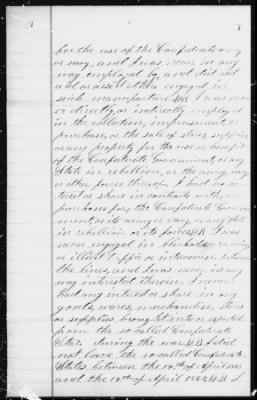 for the use of the Confederate army
or navy, and I was never in any
way employed by and did not
aid or assist others engaged in
such manufacture. I was never
or directly, or indirectly employed
in the collection, impressment or
purchase, or the sale of stores, supplies
or any property for the use or benefit
of the Confederate Government, or any
State in rebellion, or the army, navy
or other forces thereof. I had no in
terest or share in contracts with, or
purchases for, the Confederate Govern
ment, or its army or navy, or any State
in rebellion or its forces. I was
never engaged in blockade running
or illicit traffic or intercourse between
the lines, and I was never in any
way interested therein. I never
had any interest or share in any
goods, wares, merchandise, stores
or supplies brought into or exported
from the so-called Confederate
States during the war. I did
not leave the so-called Confederate
States between the 19th of April 1861
and the 19th of April 1865. I